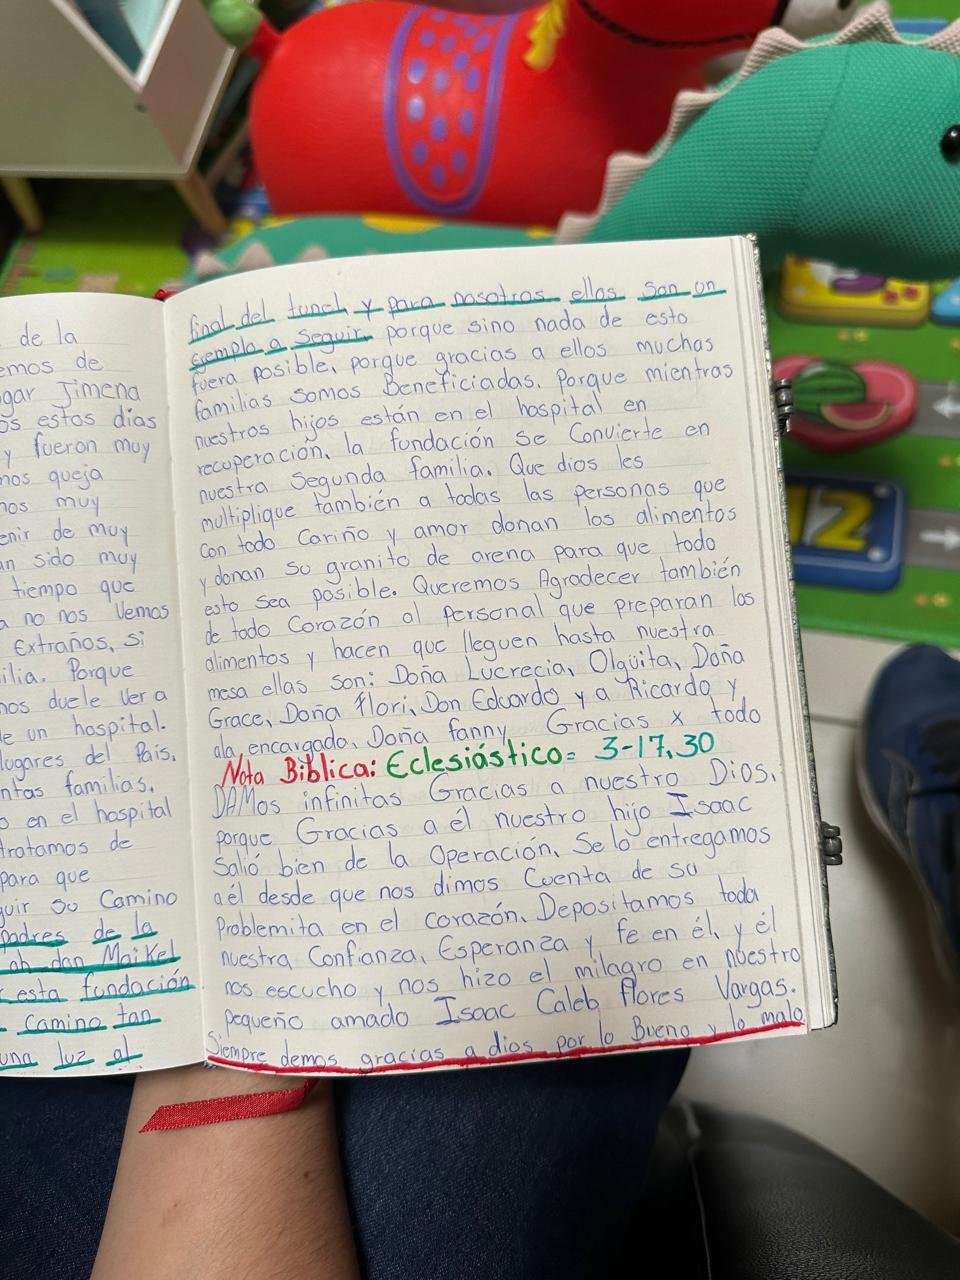 de la
emos de
gar Jimena
os estos días
y fueron muy
mos queja
nos muy
enir de muy
an sido muy
tiempo que
a no nos Vemos
Extraños, si
ilia. Porque
nos duele Ver a
de un hospital.
lugares del País.
ntas familias.
o en el hospital
tratamos de
para que
guir su Camino
padres de la
ah dan Maikel
r esta fundación
Camino tan
una luz al
final del tunel y para nosotros ellos son un
ejemplo a seguir porque sino nada de esto
fuera posible, porque gracias a ellos muchas
familias somos Beneficiadas. Porque mientras
nuestros hijos están en el hospital en
recuperación, la fundación se Convierte en
nuestra Segunda familia. Que dios les
multiplique también a todas las personas que
con todo Cariño y amor donan los alimentos
y donan su granito de arena para que todo
esto sea posible. Queremos Agradecer también
de todo Corazón al personal que preparan los
alimentos y hacen que lleguen hasta nuestra
mesa ellas son: Doña Lucrecia, Olguita, Doña
Grace, Doña flori, Don Eduardo y a Ricardo y
ala encargada, Doña fanny. Gracias x todo
Nota Bíblica: Eclesiástico= 3-17,30
DAMos infinitas Gracias a nuestro Dios.
porque Gracias a él nuestro hijo Isaac
Salió bien de la Operación, Se lo entregamos
a él desde que nos dimos Cuenta de su
Problemita en el corazón, Depositamos toda
nuestra Confianza, Esperanza y fe en él, y él
nos escucho y nos hizo el milagro en nuestro
pequeño amado Isaac Caleb flores Vargas.
Siempre demos gracias a dios por lo Bueno y lo malo
12